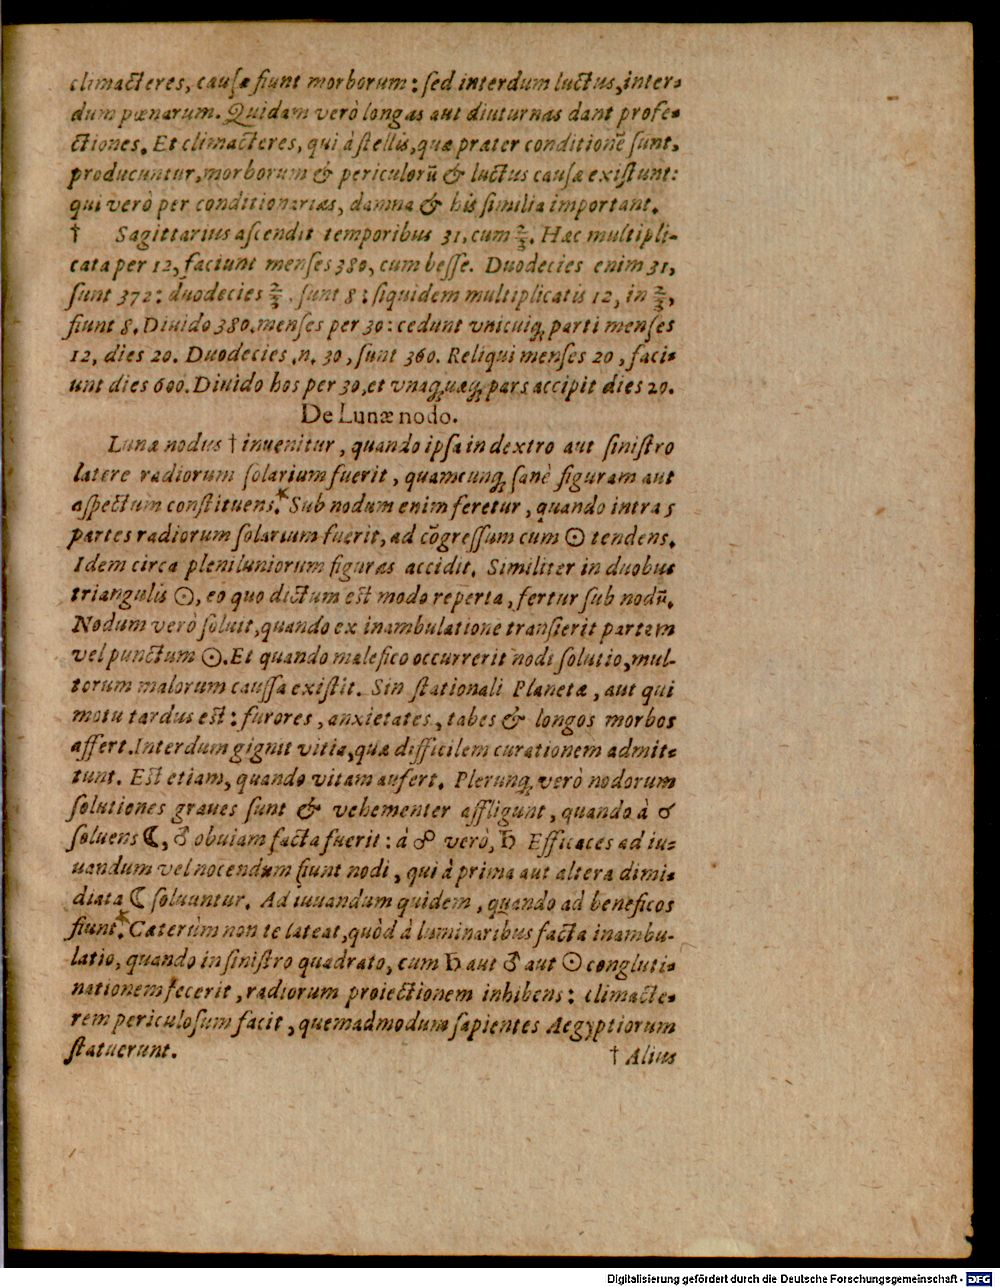 climacteres, causæ fiunt morborum: sed interdum luctus, inter-
dum pœnarum. Quidam verò longas aut diuturnas dant profe-
ctiones. Et climacteres, qui à stellis, quæ præter conditionē sunt,
producuntur, morborum & periculorū & luctus causæ existunt:
qui verò per conditionarias, damna & his similia important.
† Sagittarius ascendit temporibus 31, cum 2/3. Hæc multipli-
cata per 12, faciunt menses 380, cum besse. Duodecies enim 31,
sunt 372: duodecies 2/3. sunt 8: siquidem multiplicatis 12, in 2/3,
fiunt 8. Diuido 380. menses per 30: cedunt vnicuiq; parti menses
12, dies 20. Duodecies .n. 30, sunt 360. Reliqui menses 20, faci-
unt dies 600. Diuido hos per 30, et vnaq;uæq; pars accipit dies 20.
De Lunæ nodo.
Lunæ nodus † inuenitur, quando ipsa in dextro aut sinistro
latere radiorum solarium fuerit, quamcunq; sanè figuram aut
aspectum constituens.* Sub nodum enim feretur, quando intra 5
partes radiorum solarium fuerit, ad cōgressum cum ☉ tendens.
Idem circa pleniluniorum figuras accidit. Similiter in duobus
triangulis ☉, eo quo dictum est modo reperta, fertur sub nodū.
Nodum verò soluit, quando ex inambulatione transierit partem
vel punctum ☉. Et quando malefico occurrerit nodi solutio, mul-
torum malorum caussa existit. Sin stationali Planetæ, aut qui
motu tardus est: furores, anxietates, tabes & longos morbos
affert. Interdum gignit vitia, quæ difficilem curationem admit-
tunt. Est etiam, quando vitam aufert. Plerunq; verò nodorum
solutiones graues sunt & vehementer affligunt, quando à ☌
soluens ☾, ♂ obuiam facta fuerit: à ☍ verò, ♄ Efficaces ad iu-
uandum vel nocendum fiunt nodi, qui à prima aut altera dimi-
diata ☾ soluuntur. Ad iuuandum quidem, quando ad beneficos
fiunt.* Cæterùm non te lateat, quòd à luminaribus facta inambu-
latio, quando in sinistro quadrato, cum ♄ aut ♂ aut ☉ congluti-
nationem fecerit, radiorum proiectionem inhibens: climacte-
rem periculosum facit, quemadmodum sapientes Aegyptiorum
statuerunt.
† Alius
Digitalisierung gefördert durch die Deutsche Forschungsgemeinschaft - DFG